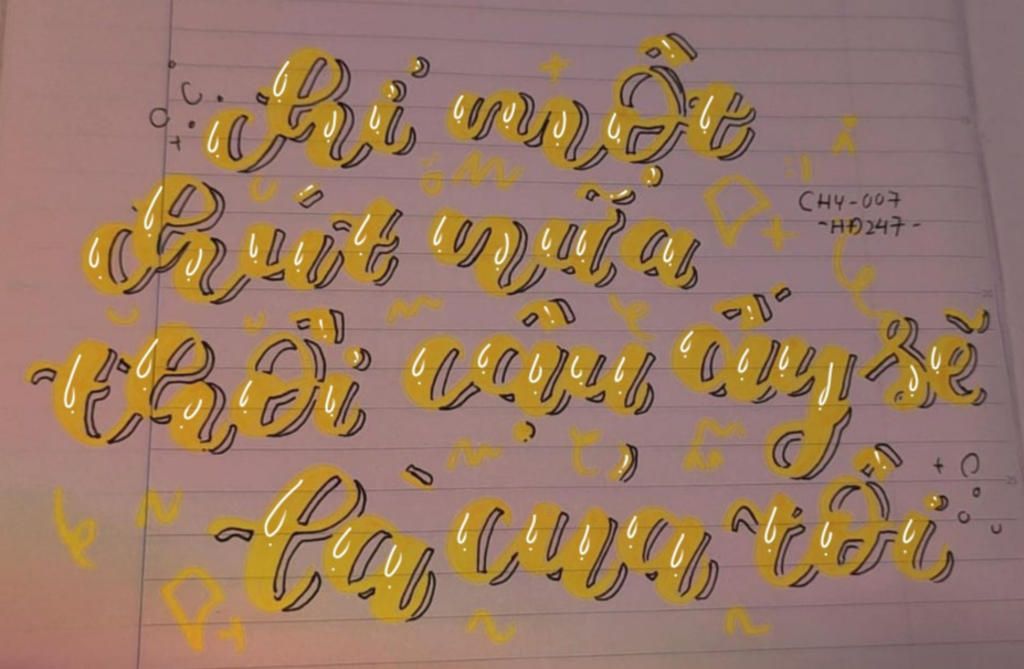 chỉ một
chút nữa
CH4-007
-HĐ247-
thôi cậu ấy sẽ
là của tôi